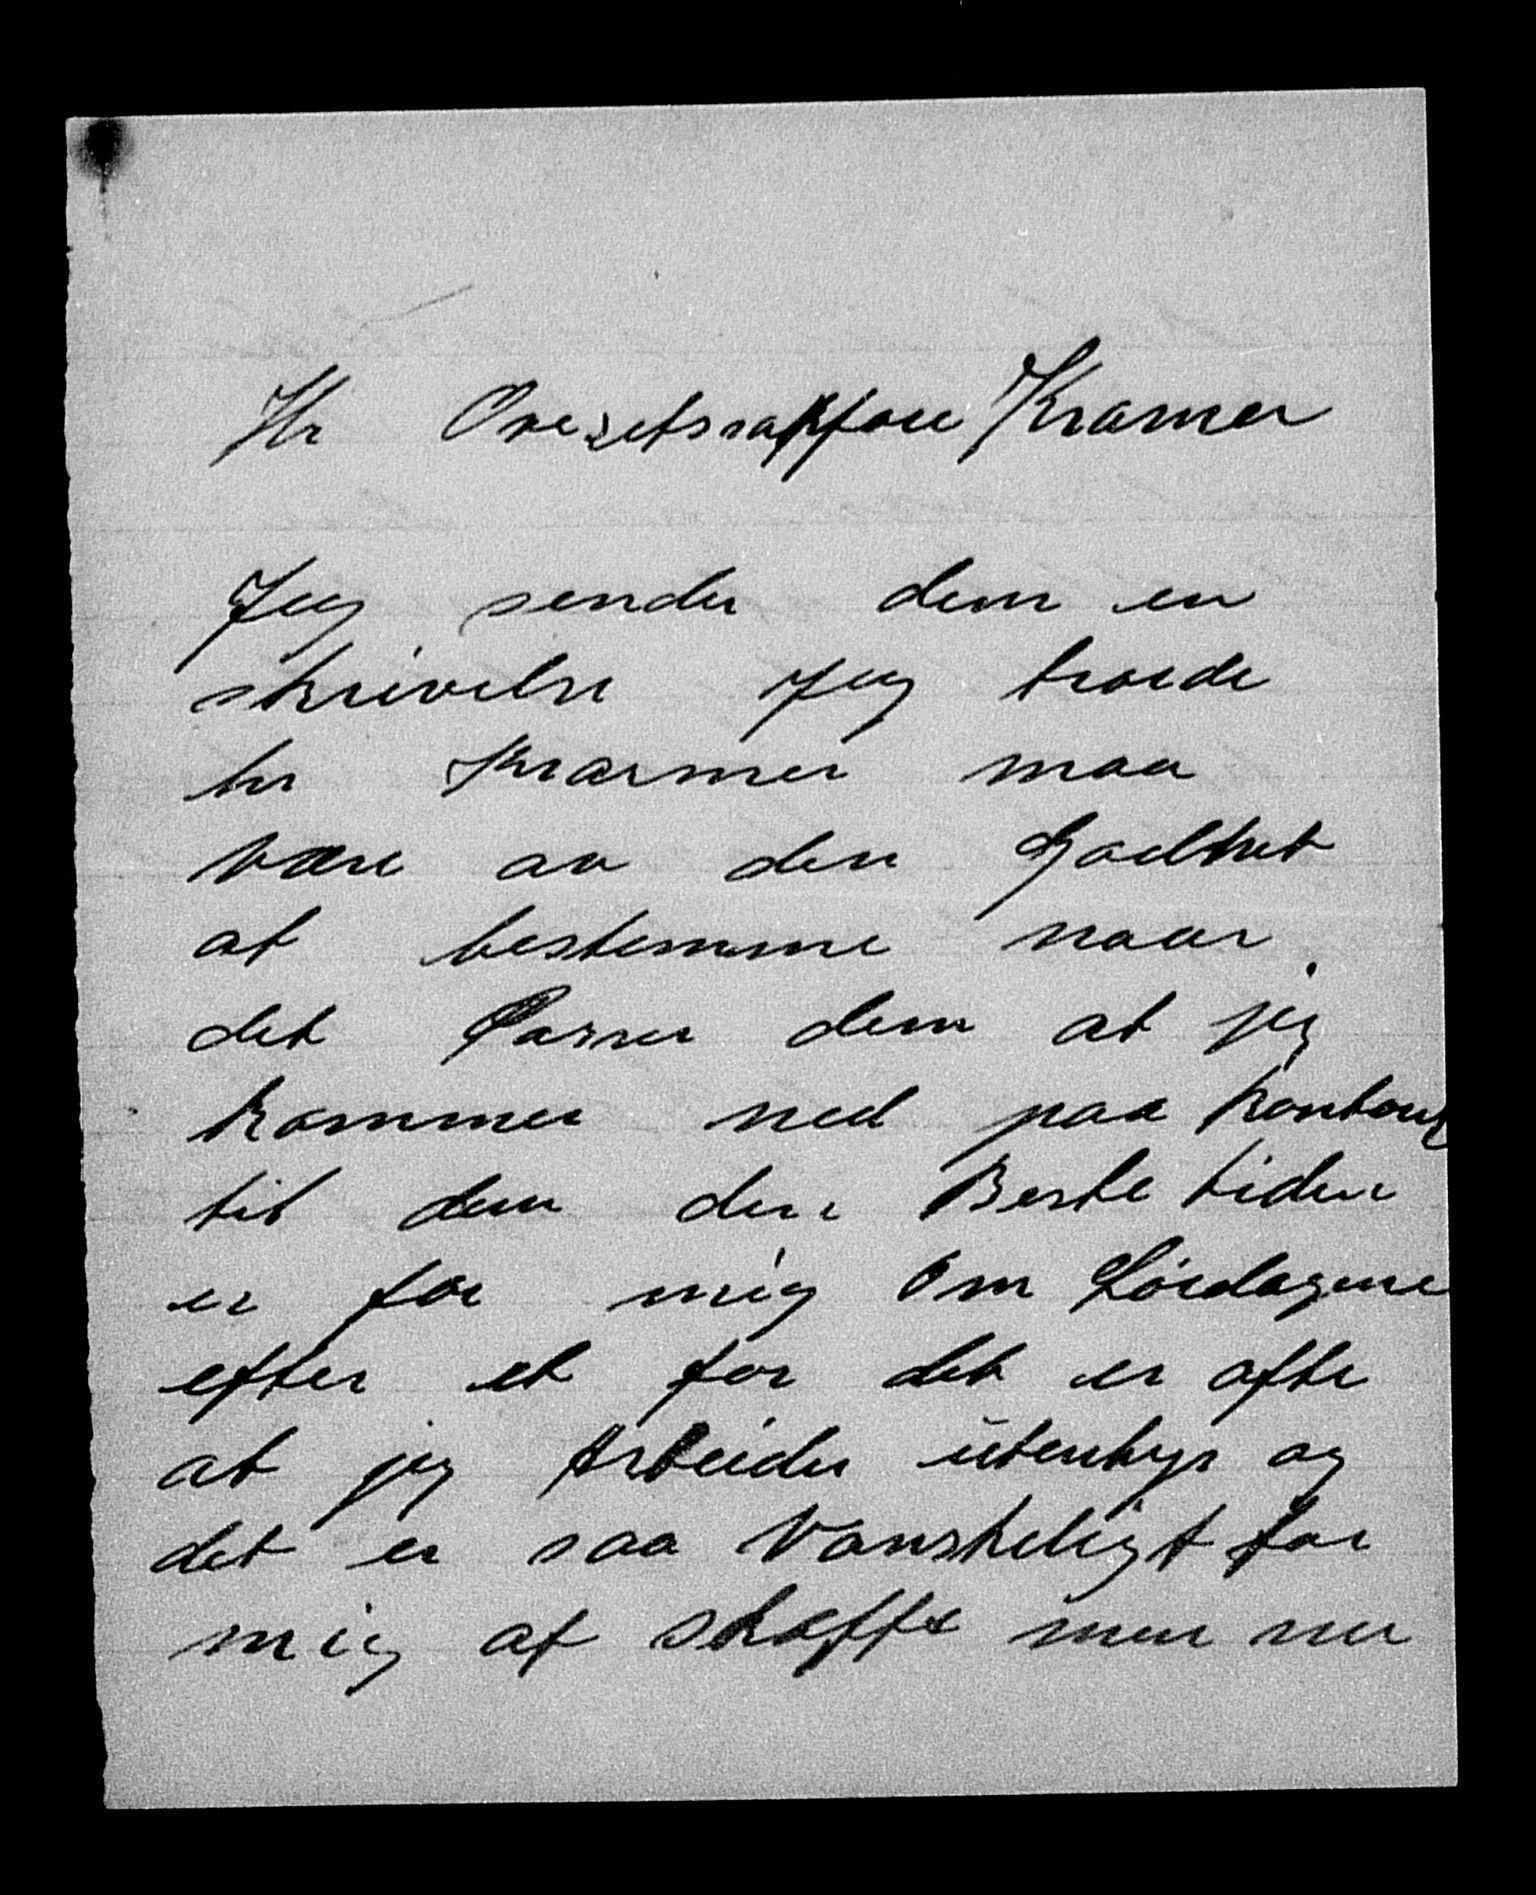 Hr Kramer
Jeg sender dem en
skrivelse Jeg troede
hr Krarmer maa
være av den Godhet
at bestemme naar
det Passer dem at jeg
kommer ned paa kontour
til dem den Beste tiden
er for mig om Lördagene
efter et for det er ofte
at jeg Arbeider utenbys og
det er saa Vanskeligt for
mig at skaffe mer nu